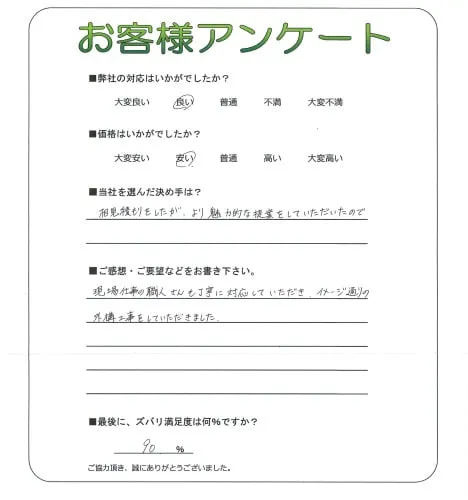 お客様アンケート
■弊社の対応はいかがでしたか？
大変良い 良い 普通 不満 大変不満
■価格はいかがでしたか？
大変安い 安い 普通 高い 大変高い
■当社を選んだ決め手は？
相見積りをしたが、より魅力的な提案をしていただいたので
■ご感想・ご要望などをお書き下さい。
現場仕事の職人さんも丁寧に対応していただき、イメージ通りの
外構工事をしていただきました。
■最後に、ズバリ満足度は何％ですか？
90 ％
ご協力頂き、誠にありがとうございました。